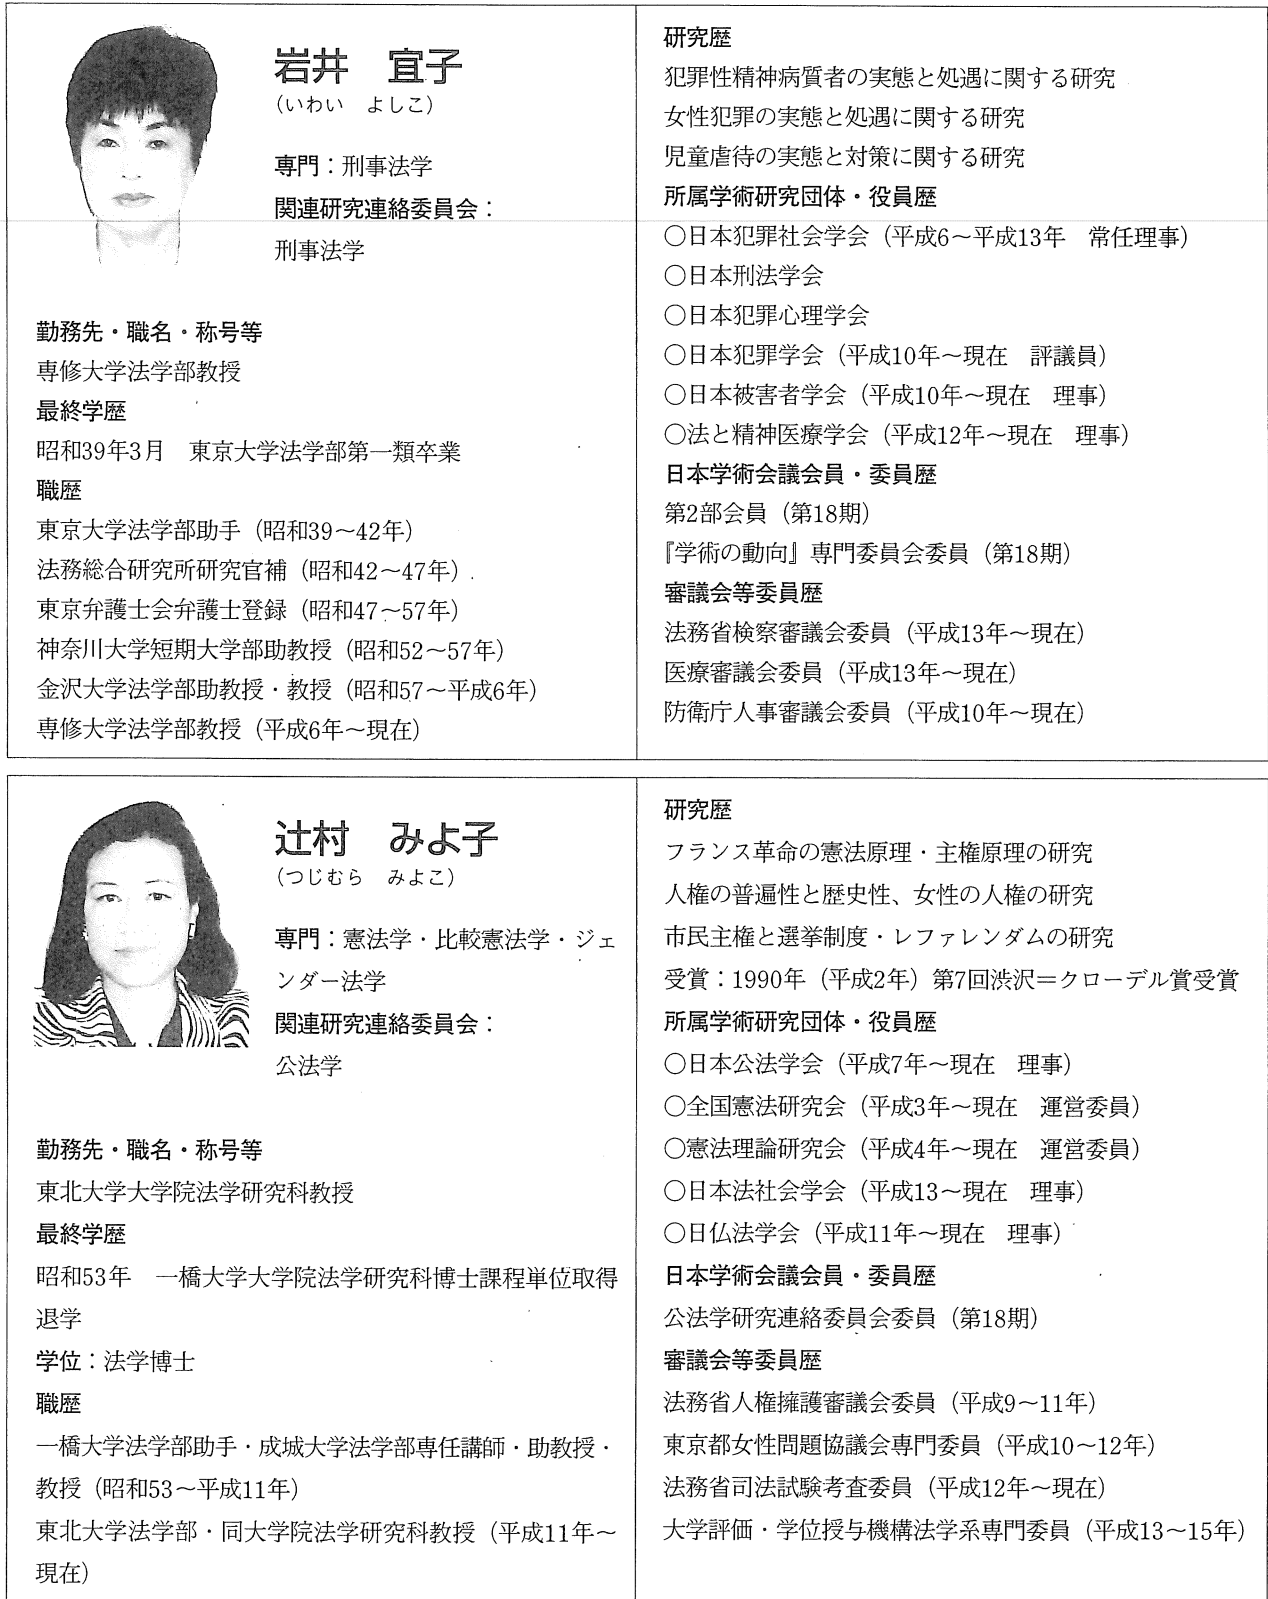 岩井　宜子
（いわい　よしこ）
専門：刑事法学
関連研究連絡委員会：
刑事法学
勤務先・職名・称号等
専修大学法学部教授
最終学歴
昭和39年3月　東京大学法学部第一類卒業
職歴
東京大学法学部助手（昭和39～42年）
法務総合研究所研究官補（昭和42～47年）
東京弁護士会弁護士登録（昭和47～57年）
神奈川大学短期大学部助教授（昭和52～57年）
金沢大学法学部助教授・教授（昭和57～平成6年）
専修大学法学部教授（平成6年～現在）
研究歴
犯罪性精神病質者の実態と処遇に関する研究
女性犯罪の実態と処遇に関する研究
児童虐待の実態と対策に関する研究
所属学術研究団体・役員歴
○日本犯罪社会学会（平成6～平成13年　常任理事）
○日本刑法学会
○日本犯罪心理学会
○日本犯罪学会（平成10年～現在　評議員）
○日本被害者学会（平成10年～現在　理事）
○法と精神医療学会（平成12年～現在　理事）
日本学術会議会員・委員歴
第2部会員（第18期）
『学術の動向』専門委員会委員（第18期）
審議会等委員歴
法務省検察審議会委員（平成13年～現在）
医療審議会委員（平成13年～現在）
防衛庁人事審議会委員（平成10年～現在）
辻村　みよ子
（つじむら　みよこ）
専門：憲法学・比較憲法学・ジェ
ンダー法学
関連研究連絡委員会：
公法学
勤務先・職名・称号等
東北大学大学院法学研究科教授
最終学歴
昭和53年　一橋大学大学院法学研究科博士課程単位取得
退学
学位：法学博士
職歴
一橋大学法学部助手・成城大学法学部専任講師・助教授・
教授（昭和53～平成11年）
東北大学法学部・同大学院法学研究科教授（平成11年～
現在）
研究歴
フランス革命の憲法原理・主権原理の研究
人権の普遍性と歴史性、女性の人権の研究
市民主権と選挙制度・レファレンダムの研究
受賞：1990年（平成2年）第7回渋沢＝クローデル賞受賞
所属学術研究団体・役員歴
○日本公法学会（平成7年～現在　理事）
○全国憲法研究会（平成3年～現在　運営委員）
○憲法理論研究会（平成4年～現在　運営委員）
○日本法社会学会（平成13～現在　理事）
○日仏法学会（平成11年～現在　理事）
日本学術会議会員・委員歴
公法学研究連絡委員会委員（第18期）
審議会等委員歴
法務省人権擁護審議会委員（平成9～11年）
東京都女性問題協議会専門委員（平成10～12年）
法務省司法試験考査委員（平成12年～現在）
大学評価・学位授与機構法学系専門委員（平成13～15年）